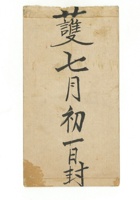 護七月初一日封